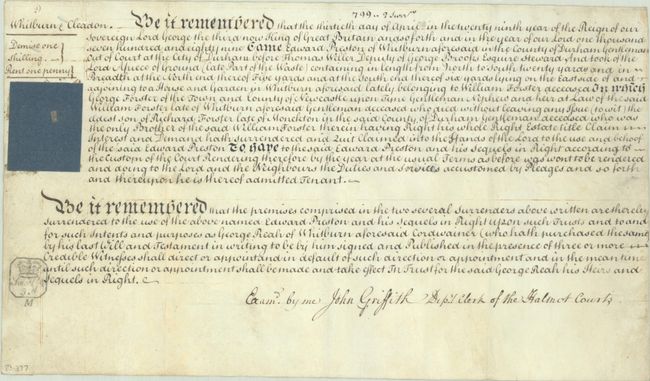 799 .. 2 Surrs
Whitburn & Cleadon.
Demise one
Shilling.
Rent one penny
Be it remembered that the thirtieth day of April in the twenty ninth year of the Reign of our
Sovereign Lord George the third now King of Great Britain and so forth and in the year of our Lord one thousand
seven hundred and eighty nine Came Edward Preston of Whitburn aforesaid in the County of Durham Gentleman
Out of Court at the City of Durham before Thomas Wilkie Deputy of George Brooks Esquire Steward And took of the
Lord A piece of Ground (late Part of the Waste) containing in length from North to South twenty yards and in
Breadth at the North end thereof Five yards and at the South end thereof six yards lying on the East side of and
adjoining to a House and Garden in Whitburn aforesaid lately belonging to William Forster deceased In which
George Forster of the Town and County of Newcastle upon Tyne Gentleman Nephew and heir at Law of the said
William Forster late of Whitburn aforesaid Gentleman deceased who died without leaving any Issue (to wit) the
eldest son of Richard Forster late of Monckton in the said County of Durham Gentleman deceased who was
the only Brother of the said William Forster therein having Right his whole Right Estate Title Claim
Interest and Demand hath surrendered and Quit Claimed into the Hands of the Lord to the use and behoof
of the said Edward Preston To have to the said Edward Preston and his Sequels in Right according to
the Custom of the Court Rendering therefore by the year at the usual Terms as before was wont to be rendered
and doing to the Lord and the Neighbours the Duties and Services accustomed by Pledges and so forth
and thereupon he is thereof admitted Tenant.
Be it remembered that the premises comprised in the two several Surrenders above written are thereby
surrendered to the use of the above named Edward Preston and his Sequels in Right upon such Trusts and to and
for such Intents and purposes as George Reah of Whitburn aforesaid Cordwainer (who hath purchased the same)
by his last Will and Testament in writing to be by him signed and Published in the presence of three or more
Credible Witnesses shall direct or appoint and in default of such direction or appointment and in the mean time
until such direction or appointment shall be made and take effect In Trust for the said George Reah his Heirs and
Sequels in Right.
M
Examd. by me John Griffith Depy. Clerk of the Halmot Courts